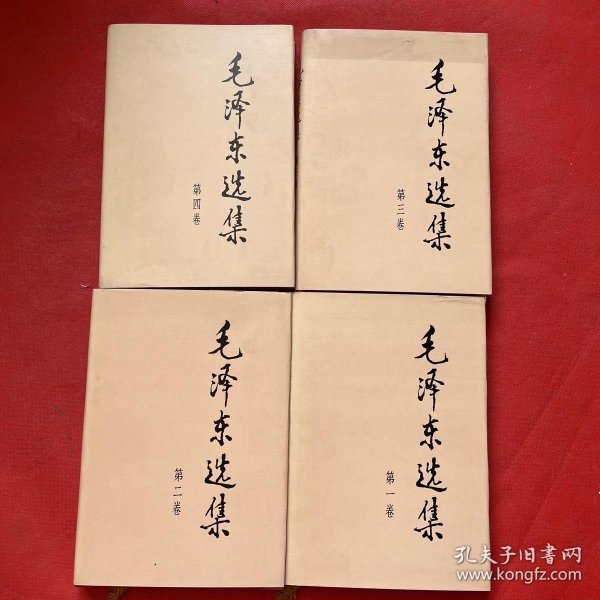 毛泽东选集
第四卷
毛泽东选集
第三卷
毛泽东选集
第二卷
毛泽东选集
第一卷
孔夫子旧书网
www.kongfz.com